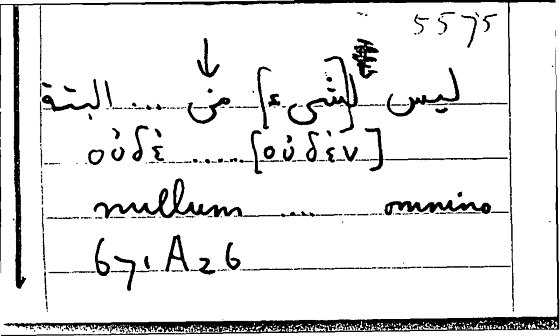 5575
ليس [لشىء] من ... البتة
οὐδὲ ..... [οὐδὲν]
nullum .... omnino
671A26